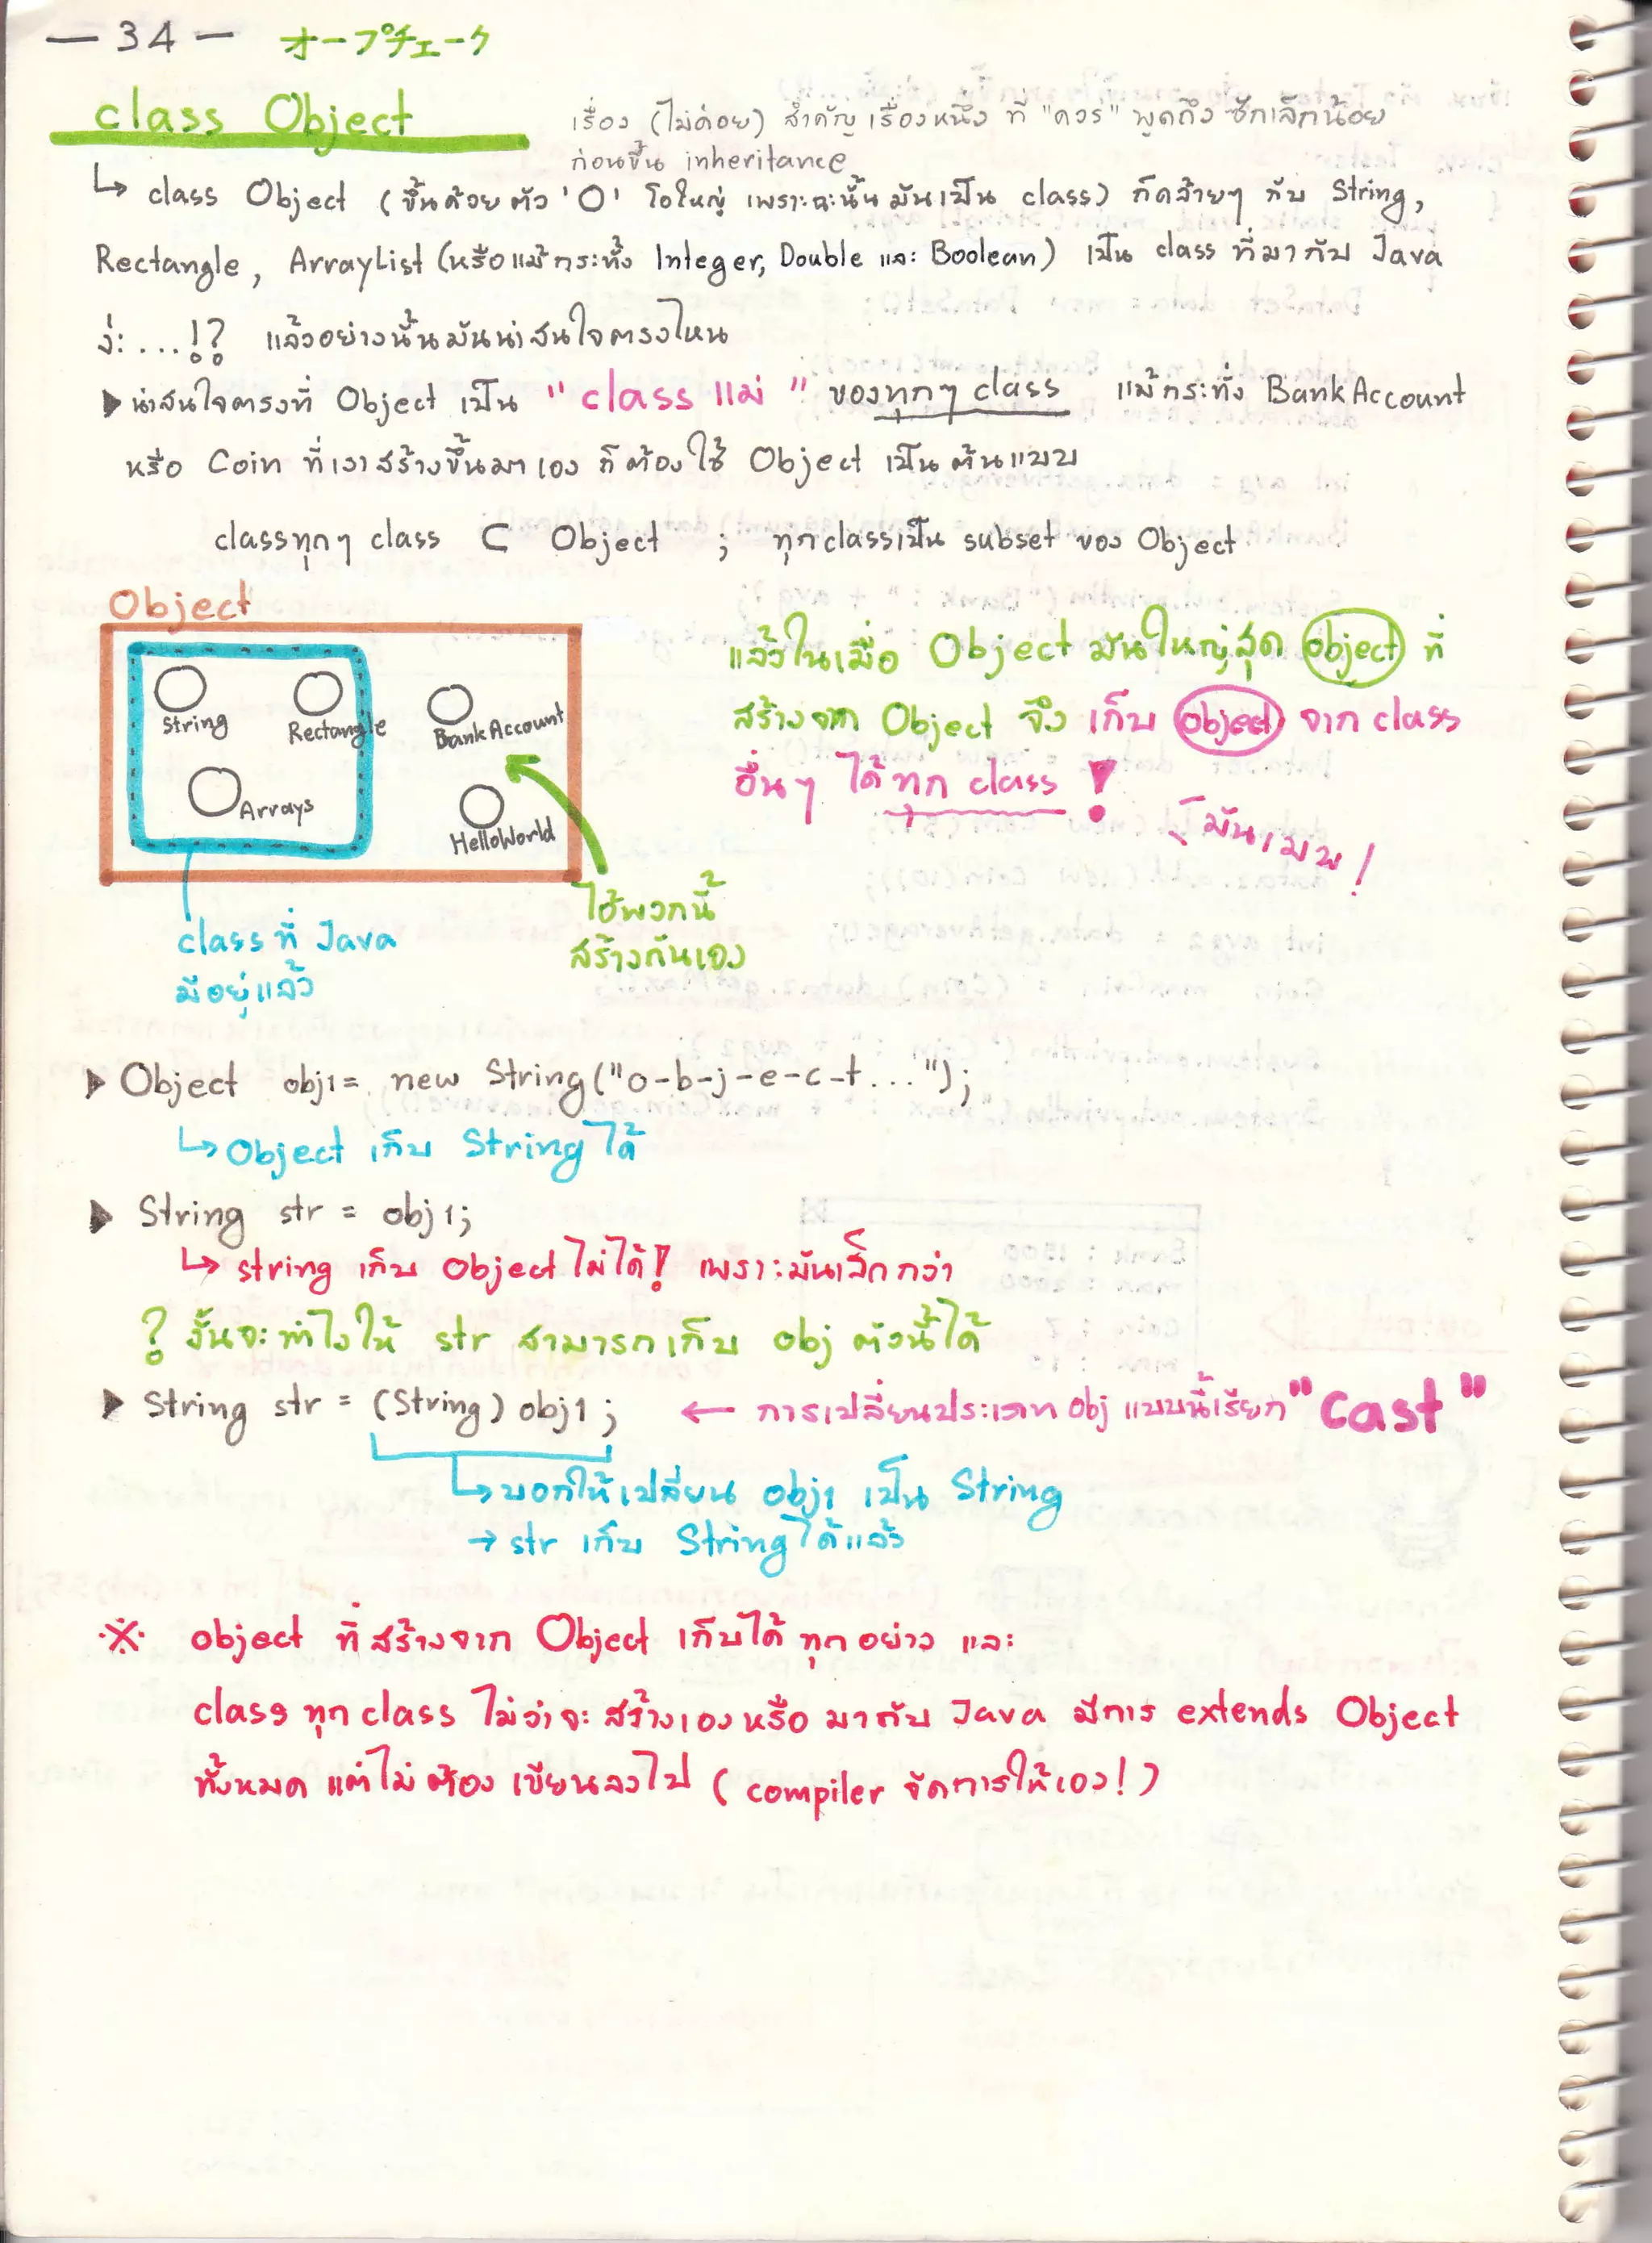 — 34 — オープチェーク
class Object
เรื่อง (ไม่ค่อย) สำคัญ เรื่องหนึ่ง ที่ "ควร" พูดถึง ซักเล็กน้อย
ก่อนขึ้น inheritance
↳ class Object (ขึ้นด้วยตัว 'O' โอใหญ่ เพราะฉะนั้นมันเป็น class) ก็คล้ายๆ กับ String,
Rectangle, ArrayList (หรือแม้กระทั้ง Integer, Double และ Boolean) เป็น class ที่มากับ Java
งะ...!? แล้วอย่างนั้นมันน่าสนใจตรงไหน
▶ น่าสนใจตรงที่ Object เป็น "class แม่" ของทุกๆ class แม้กระทั่ง BankAccount
หรือ Coin ที่เราสร้างขึ้นมาเอง ก็ต้องใช้ Object เป็นต้นแบบ
classทุกๆ class ⊂ Object ; ทุกclassเป็น subset ของ Object
Object
String
Rectangle
BankAccount
Arrays
HelloWorld
class ที่ Java
มีอยู่แล้ว
ไอ้พวกนี้
สร้างกันเอง
แล้วในเมื่อ Object มันใหญ่สุด object ที่
สร้างจาก Object จึง เก็บ object จาก class
อื่นๆ ได้ทุก class !
มันเมพ!
▶ Object obj1 = new String("o-b-j-e-c-t...");
↳ Object เก็บ String ได้
▶ String str = obj1;
↳ string เก็บ Object ไม่ได้! เพราะมันเล็กกว่า
? งั้นจะทำไงให้ str สามารถเก็บ obj ตัวนี้ได้
▶ String str = (String) obj1; ← การเปลี่ยนประเภท obj แบบนี้เรียก "cast"
↳ บอกให้เปลี่ยน obj1 เป็น String
→ str เก็บ String ได้แล้ว
※ object ที่สร้างจาก Object เก็บได้ ทุกอย่าง และ
class ทุก class ไม่ว่าจะ สร้างเองหรือ มากับ Java มีการ extends Object
ทั้งหมด แต่ไม่ต้อง เขียนลงไป (compiler จัดการให้เอง!)